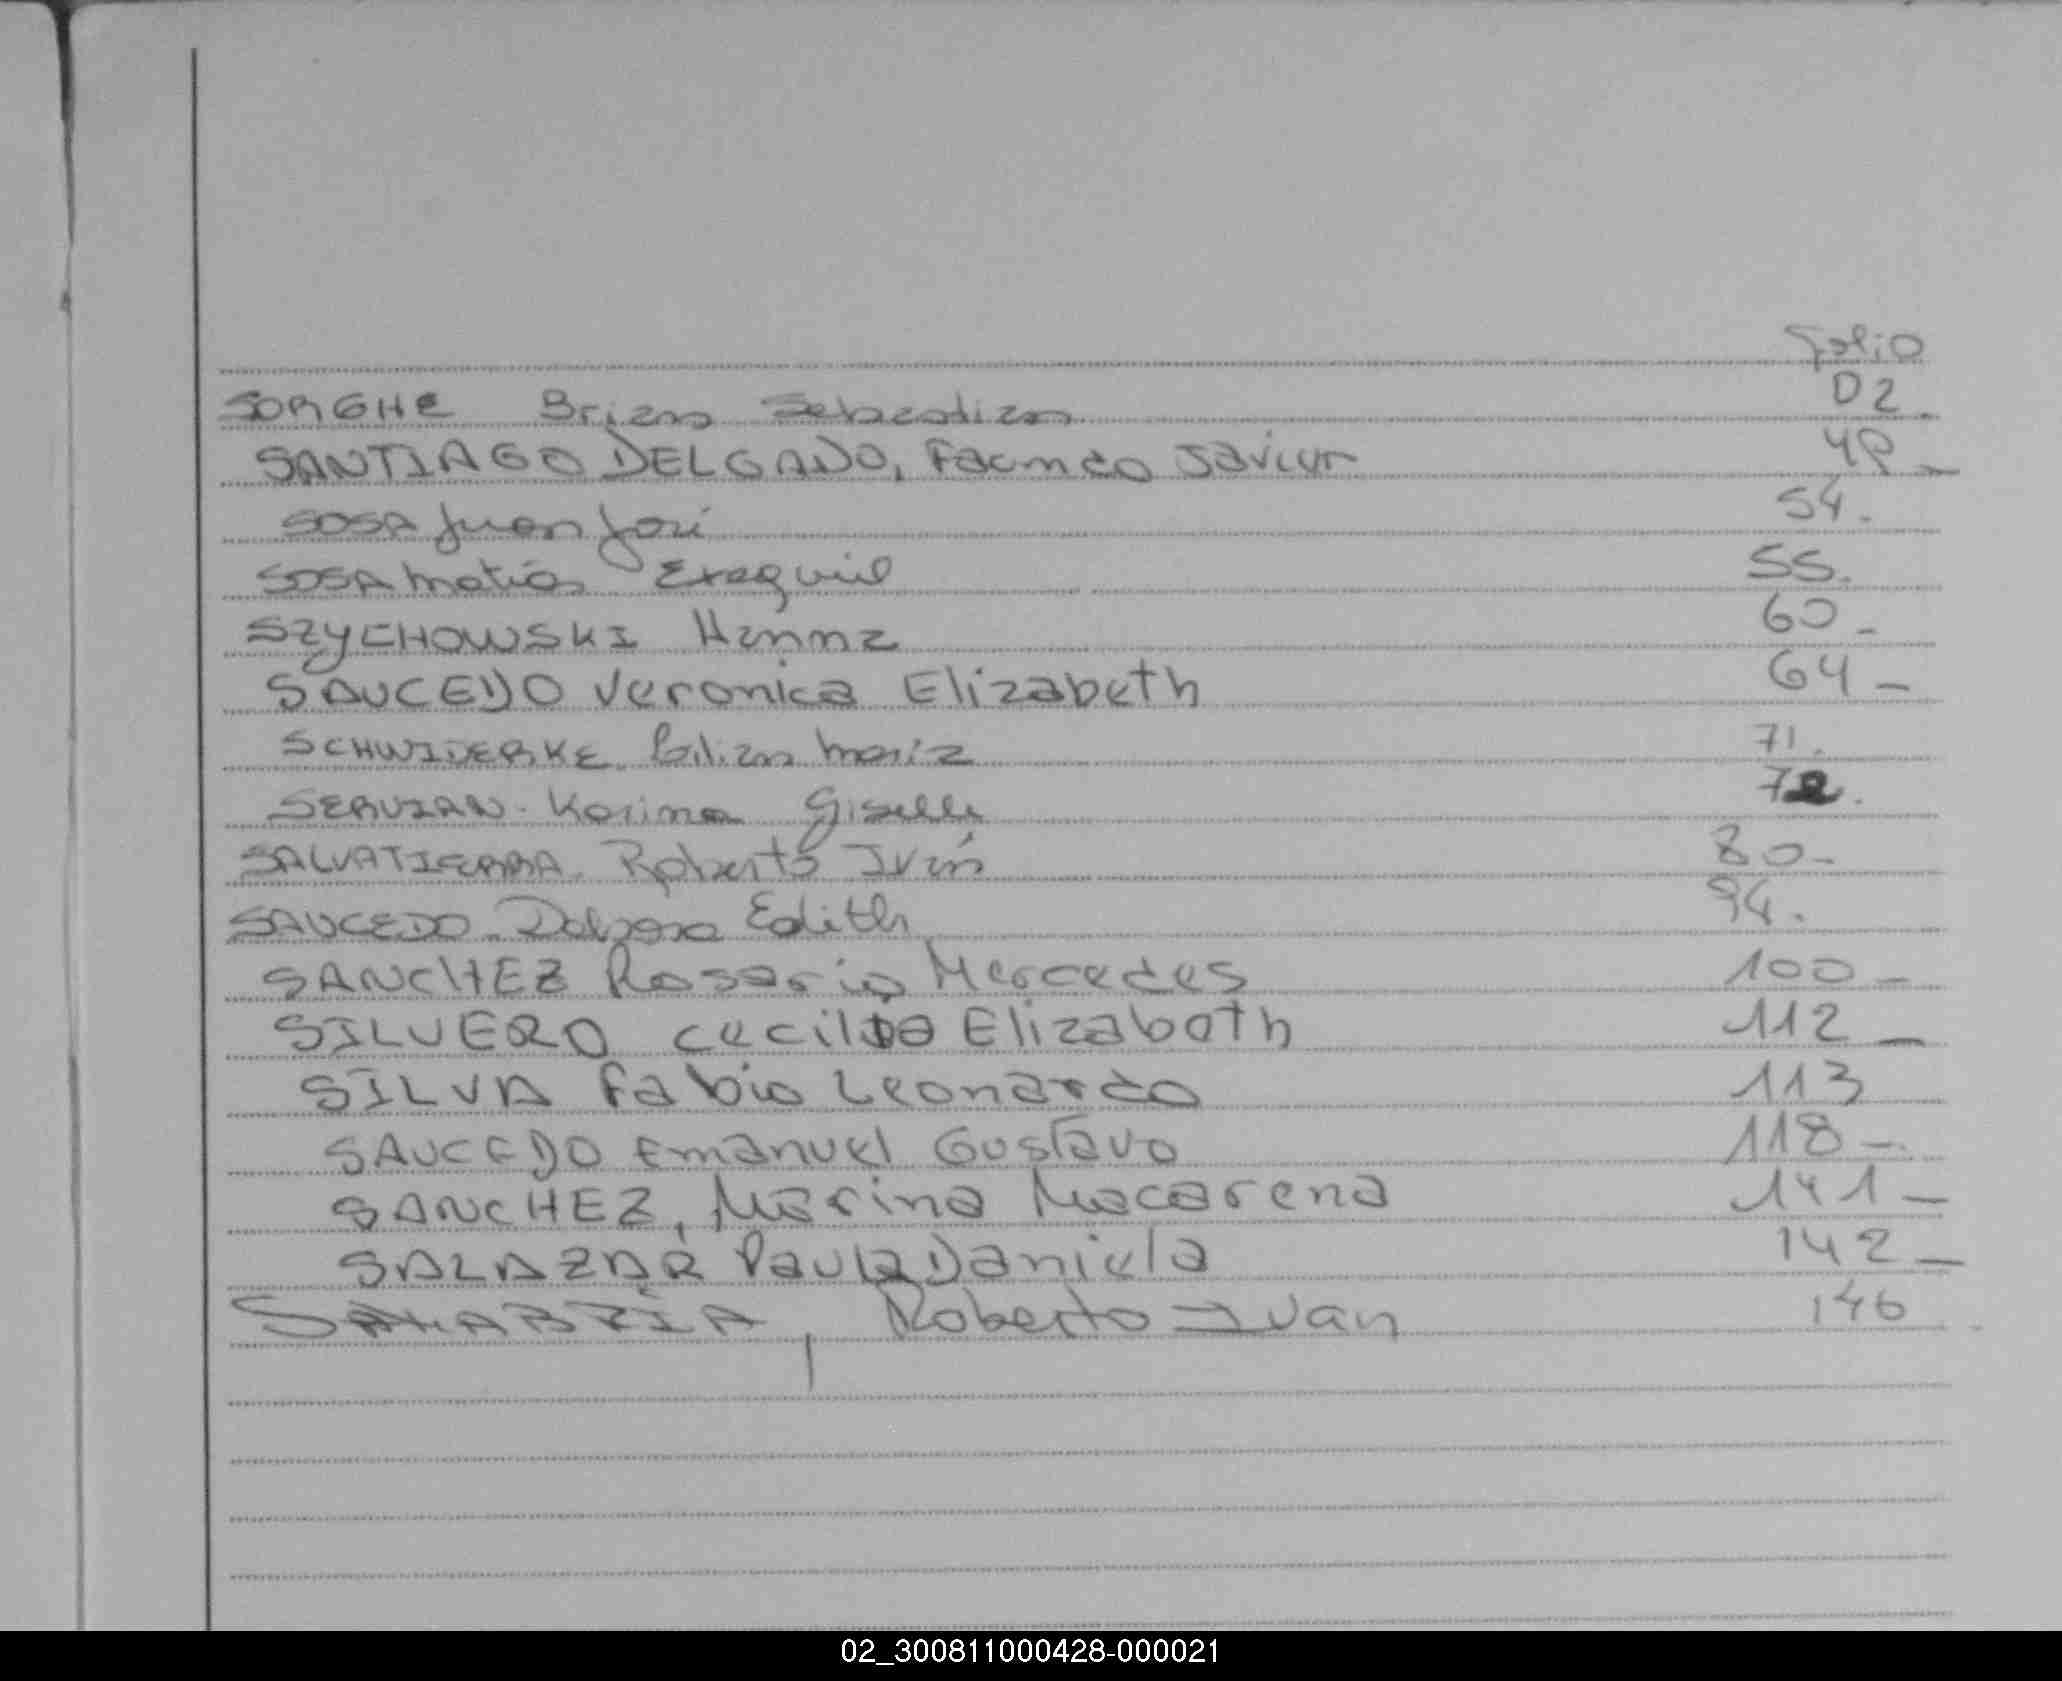 Folio
SORGHE Brian Sebastian 02.
SANTIAGO DELGADO, Facundo Javier 49 -
SOSA Juan José 54.
SOSA Matias Exequiel 55.
SZYCHOWSKI Hanna 60 -
SAUCEDO Veronica Elizabeth 64 -
SCHWIDERKE Lilian Maria 71.
SERVIAN - Karina Giselle 72.
SALVATIERRA - Roberto Iván 80 -
SAUCEDO - Edith 94.
SANCHEZ Rosario Mercedes 100 -
SILVERO Elizabeth 112 -
SILVA Fabio Leonardo 113
SAUCEDO Emanuel Gustavo 118 -
SANCHEZ, Marina Macarena 141 -
SALAZAR Paula Daniela 142 -
SANABRIA, Roberto Ivan 146
02_300811000428-000021